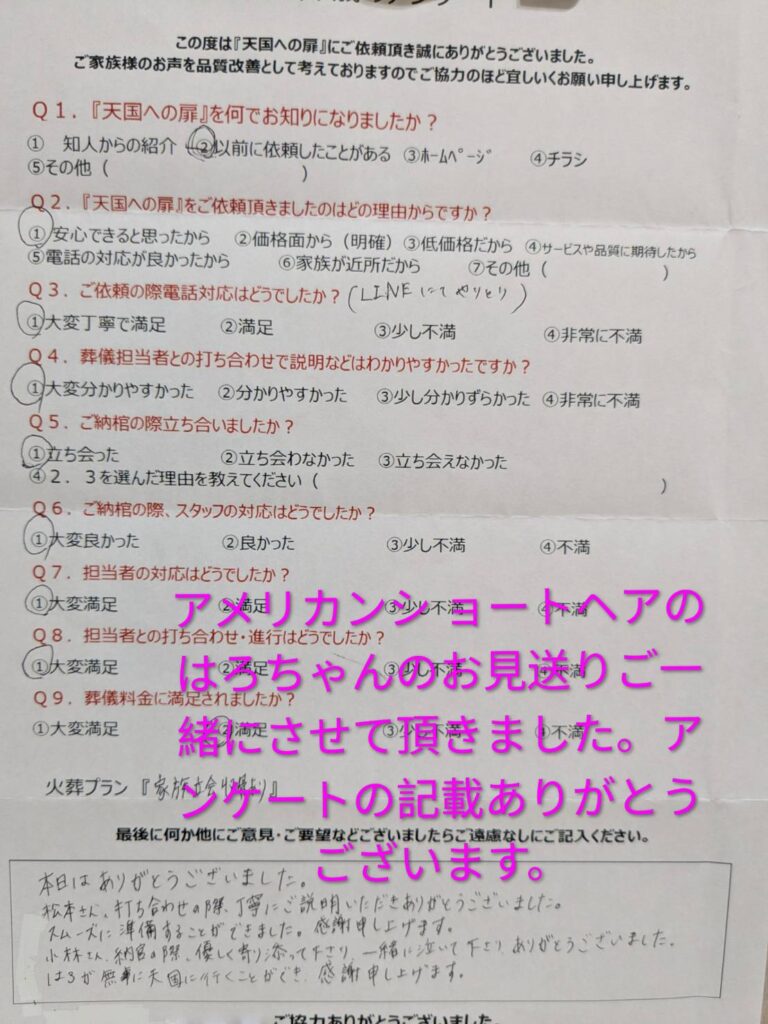 この度は『天国への扉』にご依頼頂き誠にありがとうございました。
ご家族様のお声を品質改善として考えておりますのでご協力のほど宜しいくお願い申し上げます。
Q1.『天国への扉』を何でお知りになりましたか？
① 知人からの紹介 ②以前に依頼したことがある ③ﾎｰﾑﾍﾟｰｼﾞ ④チラシ
⑤その他（ ）
Q2.『天国への扉』をご依頼頂きましたのはどの理由からですか？
①安心できると思ったから ②価格面から（明確） ③低価格だから ④サービスや品質に期待したから
⑤電話の対応が良かったから ⑥家族が近所だから ⑦その他（ ）
Q3.ご依頼の際電話対応はどうでしたか？(LINEにてやりとり)
①大変丁寧で満足 ②満足 ③少し不満 ④非常に不満
Q4.葬儀担当者との打ち合わせで説明などはわかりやすかったですか？
①大変分かりやすかった ②分かりやすかった ③少し分かりずらかった ④非常に不満
Q5.ご納棺の際立ち合いましたか？
①立ち会った ②立ち会わなかった ③立ち会えなかった
④2.3を選んだ理由を教えてください（ ）
Q6.ご納棺の際、スタッフの対応はどうでしたか？
①大変良かった ②良かった ③少し不満 ④不満
Q7.担当者の対応はどうでしたか？
①大変満足 ②満足 ③少し不満 ④不満
Q8.担当者との打ち合わせ・進行はどうでしたか？
①大変満足 ②満足 ③少し不満 ④不満
Q9.葬儀料金に満足されましたか？
①大変満足 ②満足 ③少し不満 ④不満
アメリカンショートヘアの
はろちゃんのお見送りご一
緒にさせて頂きました。ア
ンケートの記載ありがとう
ございます。
火葬プラン『家族立会』
最後に何か他にご意見・ご要望などございましたらご遠慮なしにご記入ください。
本日はありがとうございました。
松本さん、打ち合わせの際、丁寧にご説明いただきありがとうございました。
スムーズに準備することができました。感謝申し上げます。
小林さん、納棺の際、優しく寄り添って下さり、一緒に泣いて下さり、ありがとうございました。
はろが無事に天国に行くことができ、感謝申し上げます。
ご協力ありがとうございました。